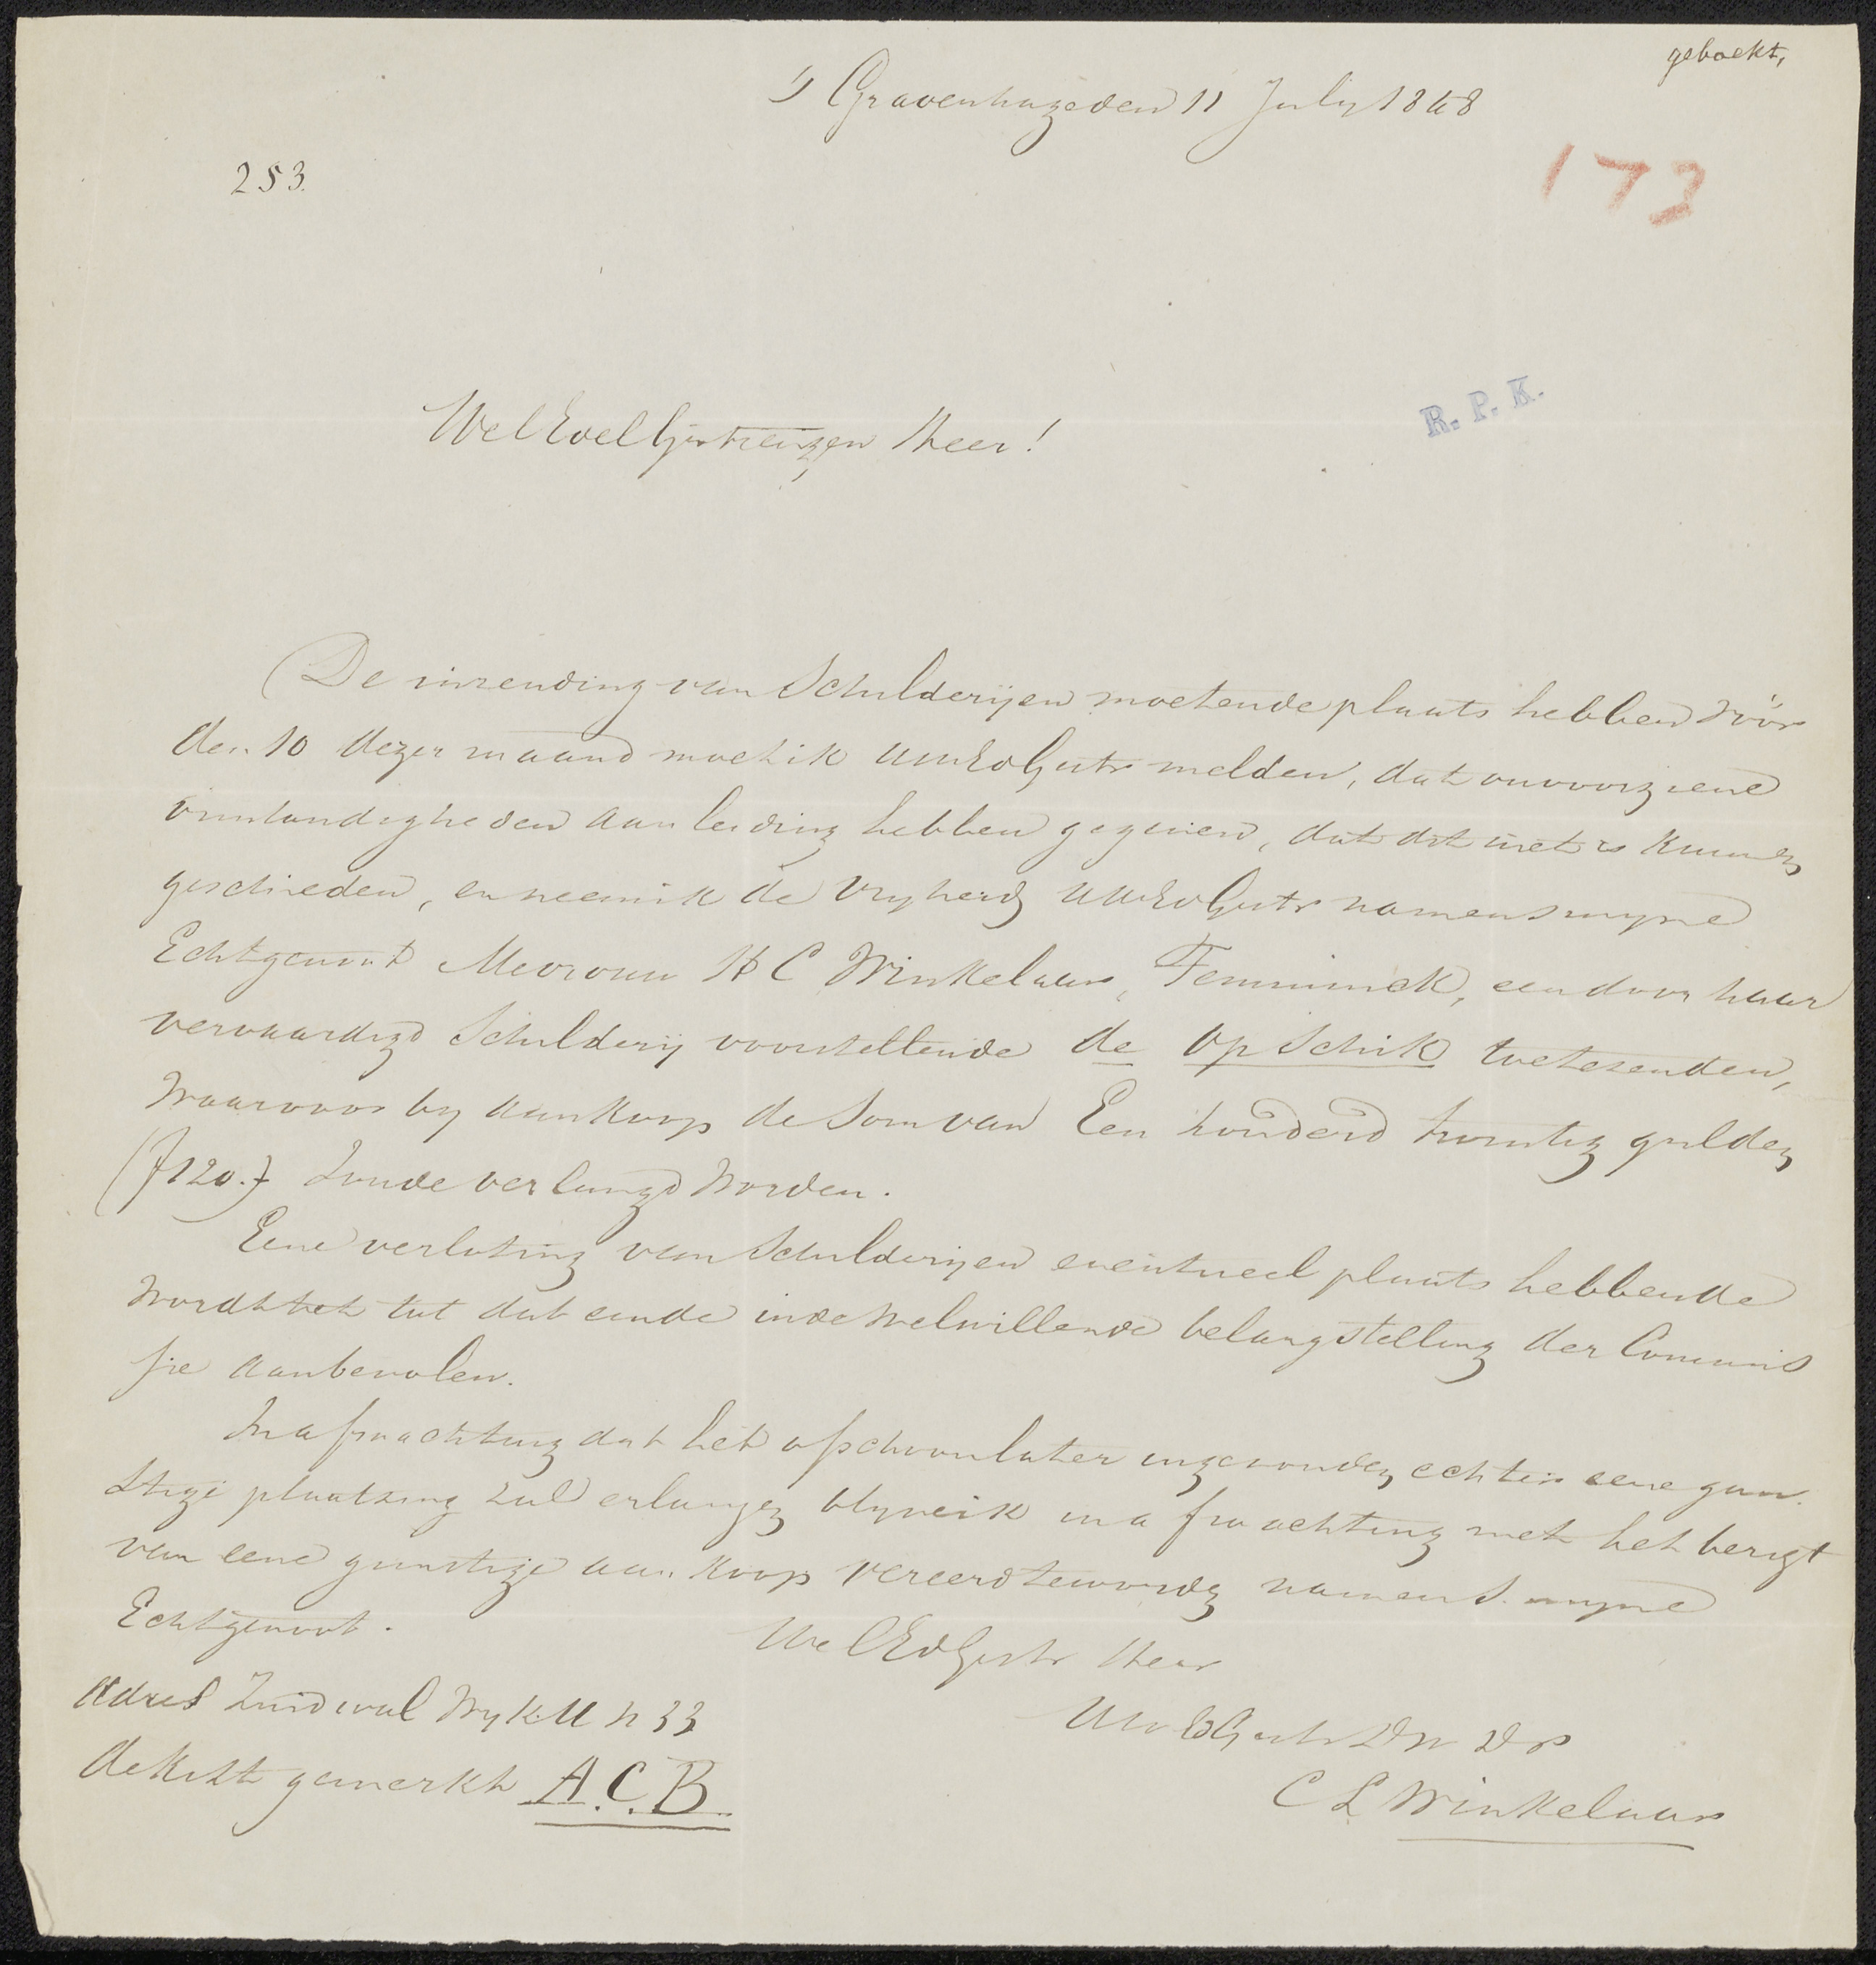 geboekt,
's Gravenhage den 11 July 1848
253.
173
R. P. K.
WelEdel Gestrengen Heer!
De inzending van Schilderijen moetende plaats hebben vóór
den 10 dezer maand moet ik UwEdGestr melden, dat onvoorziene
omstandigheden aanleiding hebben gegeven, dat dit niet is kunnen
geschieden, en neem ik de vryheid UwEdGestr namens myne
Echtgenoot Mevrouw H C Winkelaar, Temminck, een door haar
vervaardigd Schildery voorstellende de op Schik toetezenden,
waarvoor by aankoop de Som van Een honderd twintig gulden
(f120.-) zoude verlangd worden.
Eene verloting van Schilderijen eventueel plaats hebbende
wordt het tot dat einde in de welwillende belangstelling der Commis
sie aanbevolen.
In afwachting dat het ofschoon later ingezonden echter eene gun-
stige plaatsing zal erlangen blyve ik in afwachting met het berigt
van eene gunstige aankoop vereerd te worden namens myne
Echtgenoot.
WelEdGestr Heer
Adres Zuidwal Wyk U n 33
UwEdGestr Dw Dr
de Kist gemerkt A.C.B
C L Winkelaar